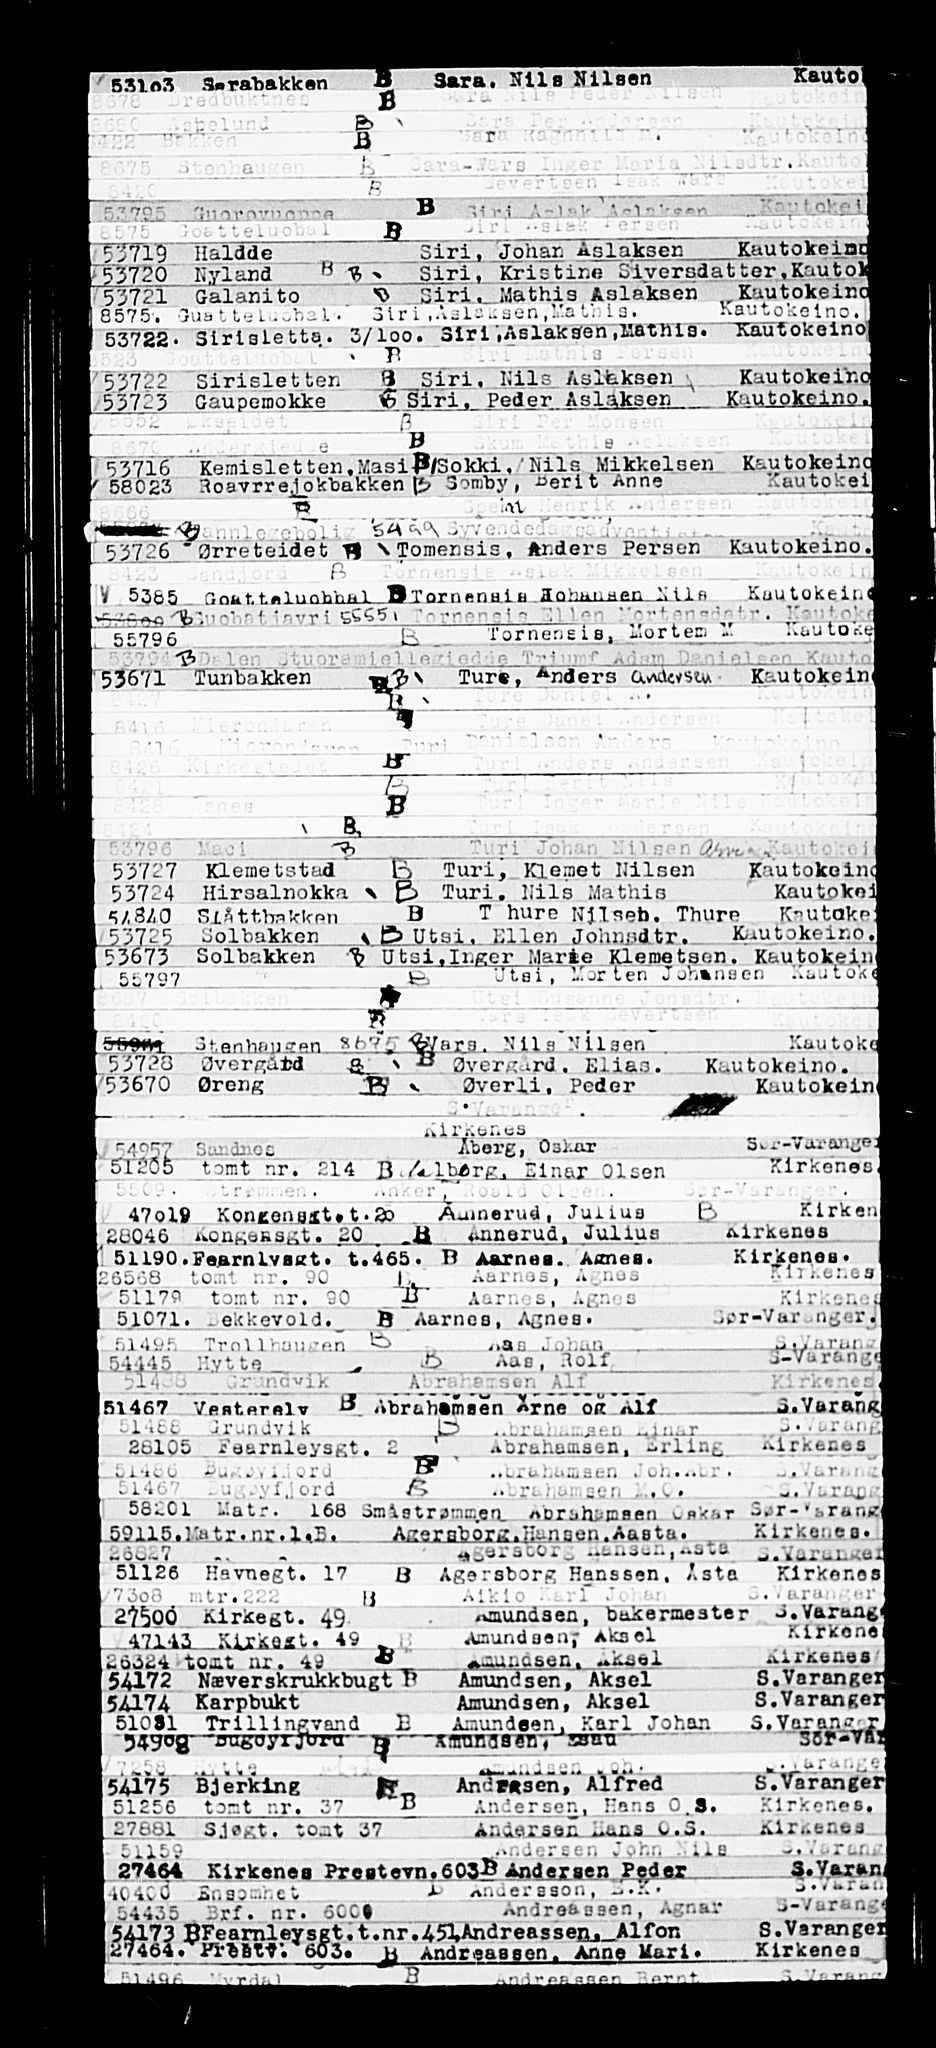 53103 Sarabakken B Sara. Nils Nilsen Kauto
8678 Bredbuktnes B Sara Nils Peder Nilsen Kautokein
8680 B Sara Per Andersen Kautokein
8422 Bakken B Sara Ragnhild M. Kautokeino
8675 Stenhaugen B Sara-Wars Inger Maria Nilsdtr. Kauto
8420 B Severtsen Isak Wars Kautokei
53795 Guorovuonne B Siri Aslak Aslaksen Kautokei
8575 Goatteluobal B Siri Aslak Persen Kautokeino
53719 Haldde Siri, Johan Aslaksen Kautokeino
53720 Nyland B B Siri, Kristine Siversdatter, Kautok
53721 Galanito B Siri. Mathis Aslaksen Kautokeino
8575. Guatteluobal. Siri, Aslaksen, Mathis. Kautokeino.
53722. Sirisletta. 3/100. Siri, Aslaksen, Mathis. Kautokeino
523 Goatteluobal B Siri Mathis Persen Kautokeino
53722 Sirisletten B Siri. Nils Aslaksen Kautokeino
53723 Gaupemokke B Siri, Peder Aslaksen Kautokeino.
8652 B Siri Per Monsen Kautokei
8670 B Skum Mathis Aslaksen Kautokei
53716 Kemisletten, Masi B/Sokki, Nils Mikkelsen Kautokeino
58023 Roavrrejokbakken B Somby, Berit Anne Kautokei
8666 B Henrik Andersen Kautokein
B Tannlegebolig 5499 Syvendedagsadventist
53726 Ørreteidet B Tomensis, Anders Persen Kautokeino.
8423 Sandjord B Tornensis Aslak Mikkelsen Kautokein
V 5385 Goatteluobbal B Tornensis Johansen Nils Kautokeino
B Suohatjavri 5555 Tornensis Ellen Mortensdatr. Kautoke
55796 B Tornensis, Mortem M Kautoke
53794 B Dalen Stuoramiellegiedde Triumf Adam Danielsen Kauto
53671 Tunbakken B B Ture, Anders Andersen Kautokein
B Ture Daniel A. Kautokein
8416 Mieronjaren Ture Danel Andersen Kautokei
8416 Mieronjaren Turi Danielsen Anders Kautokeino
8426 Kirkestedet B Turi Anders Andersen Kautokein
8421 B Turi Berit Nils Kautokei
8428 B Turi Inger Marie Nils Kautokein
8424 B Turi Isak Andersen Kautokein
53796 Maci B Turi Johan Nilsen Kautokei
53727 Klemetstad B Turi, Klemet Nilsen Kautokeino
53724 Hirsalnokka B Turi. Nils Mathis Kautokei
54840 Slåttbakken B T hure Nilseb. Thure Kautokei
53725 Solbakken B Utsi. Ellen Johnsdtr. Kautokeino.
53673 Solbakken B Utsi, Inger Marie Klemetsen. Kautokein
55797 B Utsi, Morten Johansen Kautoke
8687 Solbakken Utsi Susanne Jonsdtr. Kautokein
8420 B Wars Isak Severtsen Kautokein
Stenhaugen 8675 B Wars. Nils Nilsen Kautoke
53728 Øvergård B B Øvergård. Elias. Kautokeino.
53670 Øreng B Øverli, Peder Kautokein
S.Varanger.
Kirkenes
54957 Sandnes Aberg, Oskar Sør-Varanger
51205 tomt nr. 214 B Aalborg, Einar Olsen Kirkenes
5509. Strømmen. Anker, Roald Olsen. Sør-Varanger.
47019 Kongensgt. t. 20 Annerud, Julius B Kirken
28046 Kongensgt. 20 B Annerud, Julius Kirkenes
51190. Fearnlysgt. t.465. B Aarnes. Agnes. Kirkenes.
26568 tomt nr. 90 B. Aarnes, Agnes Kirkenes
51179 tomt nr. 90 B Aarnes, Agnes Kirkenes
51071. Bekkevold. B Aarnes, Agnes. Sør-Varanger.
51495 Trollhaugen B Aas Johan S.Varang
54445 Hytte B Aas, Rolf S-Varange
51488 Grundvik Abrahamsen Alf Kirkenes
51467 Vesterelv B Abrahamsen Arne og Alf S.Varang
51488 Grundvik B Abrahamsen Einar S.Varang
28105 Fearnleysgt. 2 Abrahamsen, Erling Kirkenes
51486 Bugøyfjord B Abrahamsen Joh.Abr. S.Varang
51467 Bugøyfjord B Abrahamsen M.O. S.Varang
58201 Matr. 168 Småstrømmen Abrahamsen Oskar Sør-Varang
59115. Matr.nr.1.B. Agersborg. Hansen. Aasta. Kirkenes.
26827 Agersborg Hansen, Asta S.Varanger
51126 Havnegt. 17 B Agersborg Hanssen, Åsta Kirkenes
7308 mtr.222 B Aikio Karl Johan S.Varanger
27500 Kirkegt. 49 Amundsen, bakermester S.Varang
47143 Kirkegt. 49 B Amundsen, Aksel Kirkene
26324 tomt nr. 49 B Amundsen, Aksel Kirkenes
54172 Næverskrukkbugt B Amundsen, Aksel S.Varanger
54174 Karpbukt Amundsen, Aksel S.Varanger
51081 Trillingvand B Amundsen, Karl Johan S.Varanger
54908 Bugøyfjord B Amundsen, Esau Sør-Var
7258 Hytte Amundsen Joh. S.Varange
54175 Bjerking B Andersen, Alfred S.Varanger
51256 tomt nr. 37 B Andersen, Hans O.S. Kirkenes.
27881 Sjøgt. tomt 37 Andersen Hans O.S. Kirkenes
51159 Andersen John Nils S.Varang
27464 Kirkenes Prestevn. 603 B Andersen Peder S.Varan
40400 Ensomhet B Andersson, E.K. S.Varan
54435 Brf. nr. 600 Andreassen, Agnar S-Varange
54173 B Fearnleysgt. t.nr.451, Andreassen, Alfon S.Varanger
27464. Prestv. 603. B Andreassen, Anne Mari. Kirkenes
51496 Myrdal B Andreassen Bernt S.Varang